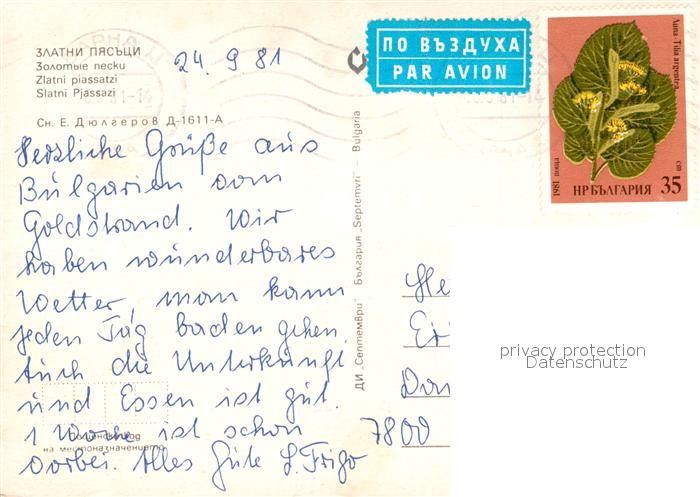 ЗЛАТНИ ПЯСЪЦИ
Золотые пески
Zlatni piassatzi
Slatni Pjassazi
24. 9 81
Сн. Е. Дюлгеров Д-1611-А
ПО ВЪЗДУХА
PAR AVION
Липа Tilia argentea
поща 1981
НР БЪЛГАРИЯ 35
cm
Herzliche Grüße aus
Bulgarien vom
Goldstrand. Wir
haben wunderbares
Wetter, man kann
jeden Tag baden gehen.
Auch die Unterkunft
und Essen ist gut.
1 Woche ist schon
vorbei. Alles Gute L. Frigo
на местоназначението
ДИ „Септември" България „Septemvri" — Bulgaria
He
Eri
Dan
7800
privacy protection
Datenschutz